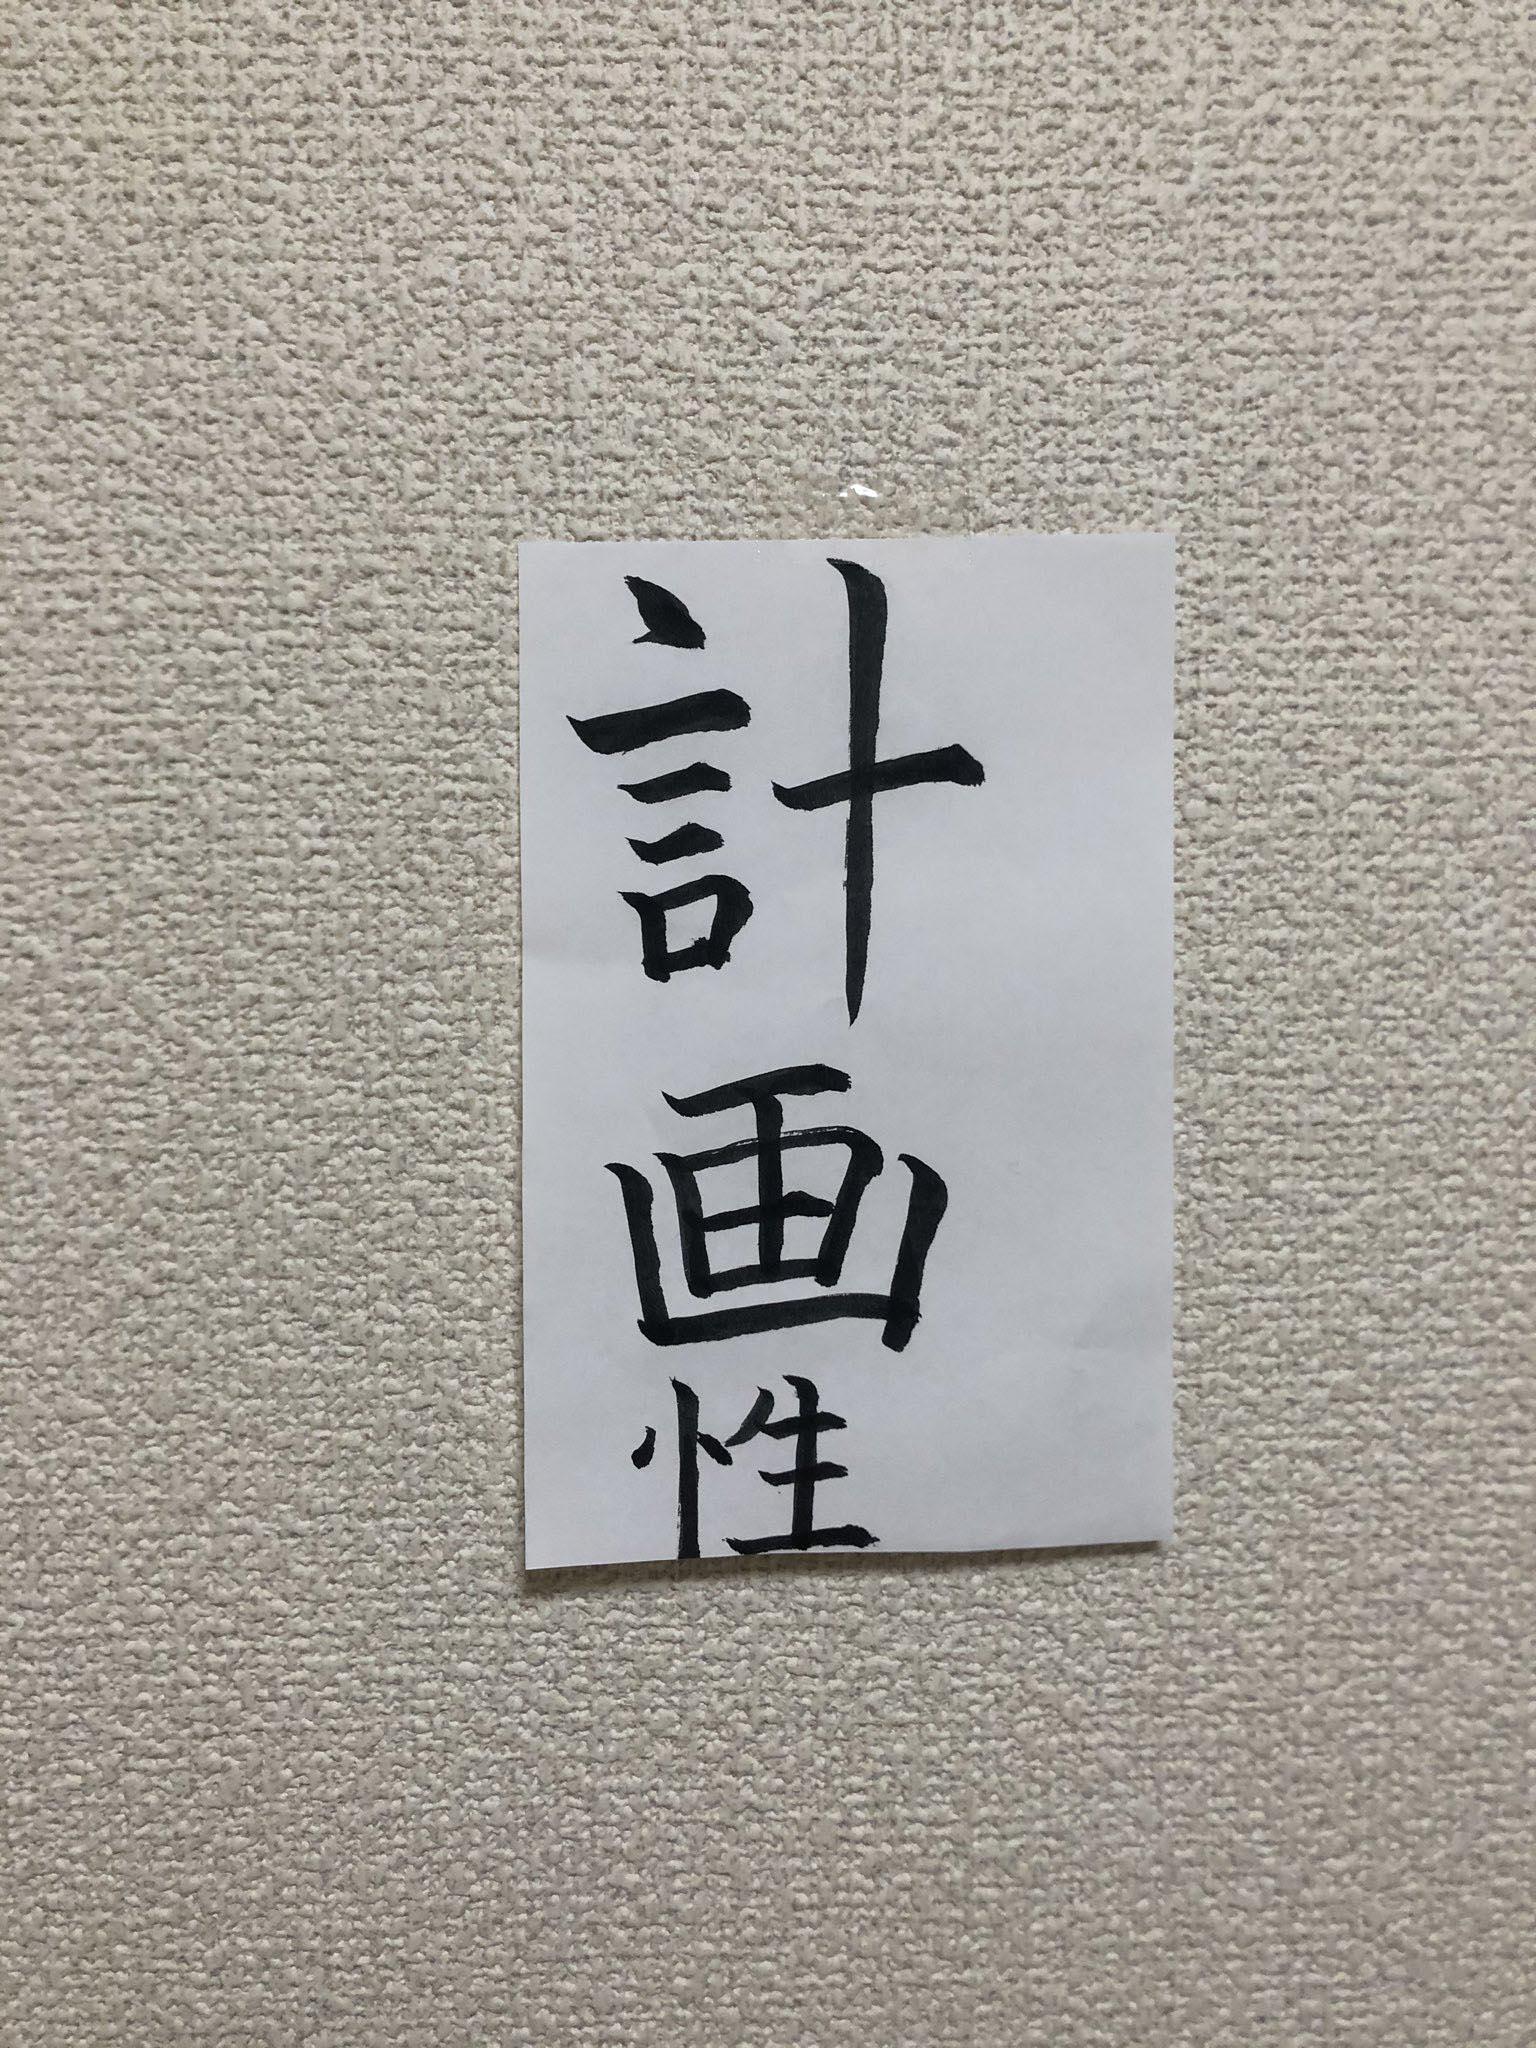 計画性